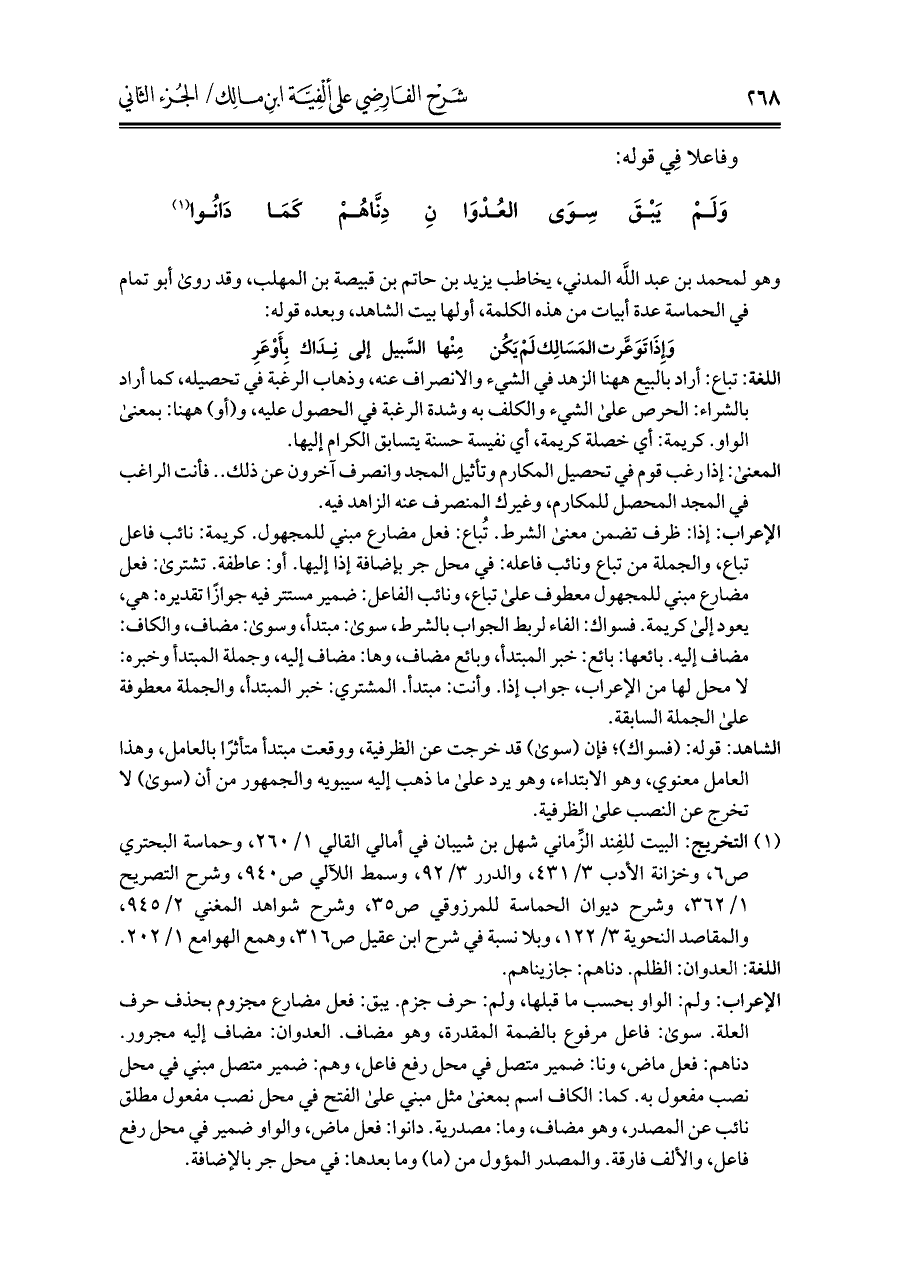 ٢٦٨ شرح الفارضي على ألفية ابن مالك/ الجزء الثاني
وفاعلا فِي قوله:
وَلَـمْ يَبْقَ سِـوَى العُـدْوَا نِ دِنَّاهُـمْ كَمَـا دَانُـوا(١)
وهو لمحمد بن عبد اللَّه المدني، يخاطب يزيد بن حاتم بن قبيصة بن المهلب، وقد روىٰ أبو تمام
في الحماسة عدة أبيات من هذه الكلمة، أولها بيت الشاهد، وبعده قوله:
وَإِذَا تَوَعَّرت المَسَالِك لَمْ يَكُن مِنْها السَّبيل إلى نِـدَاك بِأَوْعَرِ
اللغة: تباع: أراد بالبيع ههنا الزهد في الشيء والانصراف عنه، وذهاب الرغبة في تحصيله، كما أراد
بالشراء: الحرص علىٰ الشيء والكلف به وشدة الرغبة في الحصول عليه، و(أو) ههنا: بمعنىٰ
الواو. كريمة: أي خصلة كريمة، أي نفيسة حسنة يتسابق الكرام إليها.
المعنىٰ: إذا رغب قوم في تحصيل المكارم وتأثيل المجد وانصرف آخرون عن ذلك.. فأنت الراغب
في المجد المحصل للمكارم، وغيرك المنصرف عنه الزاهد فيه.
الإعراب: إذا: ظرف تضمن معنىٰ الشرط. تُباع: فعل مضارع مبني للمجهول. كريمة: نائب فاعل
تباع، والجملة من تباع ونائب فاعله: في محل جر بإضافة إذا إليها. أو: عاطفة. تشترىٰ: فعل
مضارع مبني للمجهول معطوف علىٰ تباع، ونائب الفاعل: ضمير مستتر فيه جوازًا تقديره: هي،
يعود إلىٰ كريمة. فسواك: الفاء لربط الجواب بالشرط، سوىٰ: مبتدأ، وسوىٰ: مضاف، والكاف:
مضاف إليه. بائعها: بائع: خبر المبتدأ، وبائع مضاف، وها: مضاف إليه، وجملة المبتدأ وخبره:
لا محل لها من الإعراب، جواب إذا. وأنت: مبتدأ. المشتري: خبر المبتدأ، والجملة معطوفة
علىٰ الجملة السابقة.
الشاهد: قوله: (فسواك)؛ فإن (سوىٰ) قد خرجت عن الظرفية، ووقعت مبتدأ متأثرًا بالعامل، وهذا
العامل معنوي، وهو الابتداء، وهو يرد علىٰ ما ذهب إليه سيبويه والجمهور من أن (سوىٰ) لا
تخرج عن النصب علىٰ الظرفية.
(١) التخريج: البيت للفِند الزِّماني شهل بن شيبان في أمالي القالي ١/ ٢٦٠، وحماسة البحتري
ص٦، وخزانة الأدب ٣/ ٤٣١، والدرر ٣/ ٩٢، وسمط اللآلي ص٩٤٠، وشرح التصريح
١/ ٣٦٢، وشرح ديوان الحماسة للمرزوقي ص٣٥، وشرح شواهد المغني ٢/ ٩٤٥،
والمقاصد النحوية ٣/ ١٢٢، وبلا نسبة في شرح ابن عقيل ص٣١٦، وهمع الهوامع ١/ ٢٠٢.
اللغة: العدوان: الظلم. دناهم: جازيناهم.
الإعراب: ولم: الواو بحسب ما قبلها، ولم: حرف جزم. يبق: فعل مضارع مجزوم بحذف حرف
العلة. سوىٰ: فاعل مرفوع بالضمة المقدرة، وهو مضاف. العدوان: مضاف إليه مجرور.
دناهم: فعل ماض، ونا: ضمير متصل في محل رفع فاعل، وهم: ضمير متصل مبني في محل
نصب مفعول به. كما: الكاف اسم بمعنىٰ مثل مبني علىٰ الفتح في محل نصب مفعول مطلق
نائب عن المصدر، وهو مضاف، وما: مصدرية. دانوا: فعل ماض، والواو ضمير في محل رفع
فاعل، والألف فارقة. والمصدر المؤول من (ما) وما بعدها: في محل جر بالإضافة.